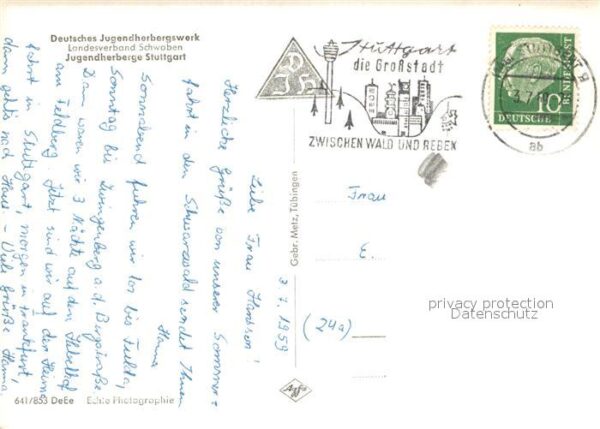 Deutsches Jugendherbergswerk
Landesverband Schwaben
Jugendherberge Stuttgart
Stuttgart
die Großstadt
ZWISCHEN WALD UND REBEN
STUTTGART 9
3.7.
ab
10
DEUTSCHE
BUNDESPOST
3.7.1959
Liebe Frau Hansen!
Herzliche Grüße von unserer Sommer-
fahrt in den Schwarzwald sendet Ihnen
Hanna
Sonnabend fuhren wir los bis Fulda,
Sonntag bis Zwingenberg a. d. Bergstraße.
Dann waren wir 3 Nächte auf dem Hebelhof
am Feldberg. Jetzt sind wir auf der Heim-
fahrt in Stuttgart, morgen in Frankfurt,
dann gehts nach Haus - Viele Grüße Hanna.
Gebr. Metz, Tübingen
Frau
E.
(24a)
privacy protection
Datenschutz
Agfa
641/853 DeEe Echte Photographie